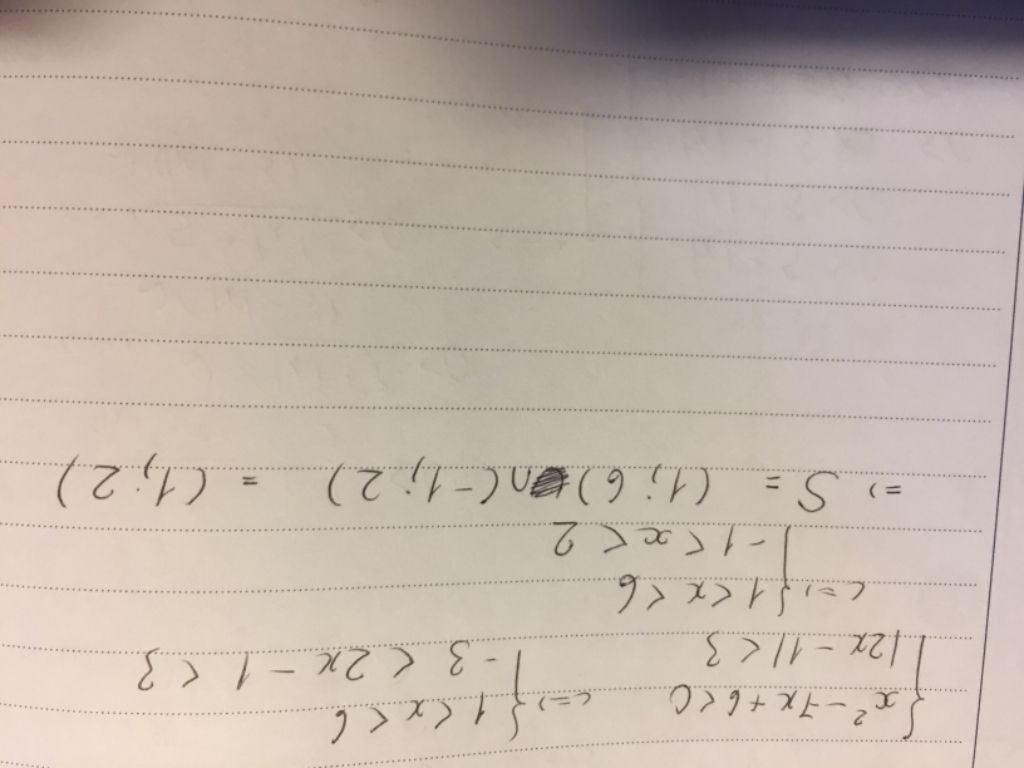 { x² - 7x + 6 < 0 <=> { 1 < x < 6
|2x - 1| < 3 - 3 < 2x - 1 < 3
<=> { 1 < x < 6
-1 < x < 2
=> S = (1; 6) ∩ (-1; 2) = (1; 2)